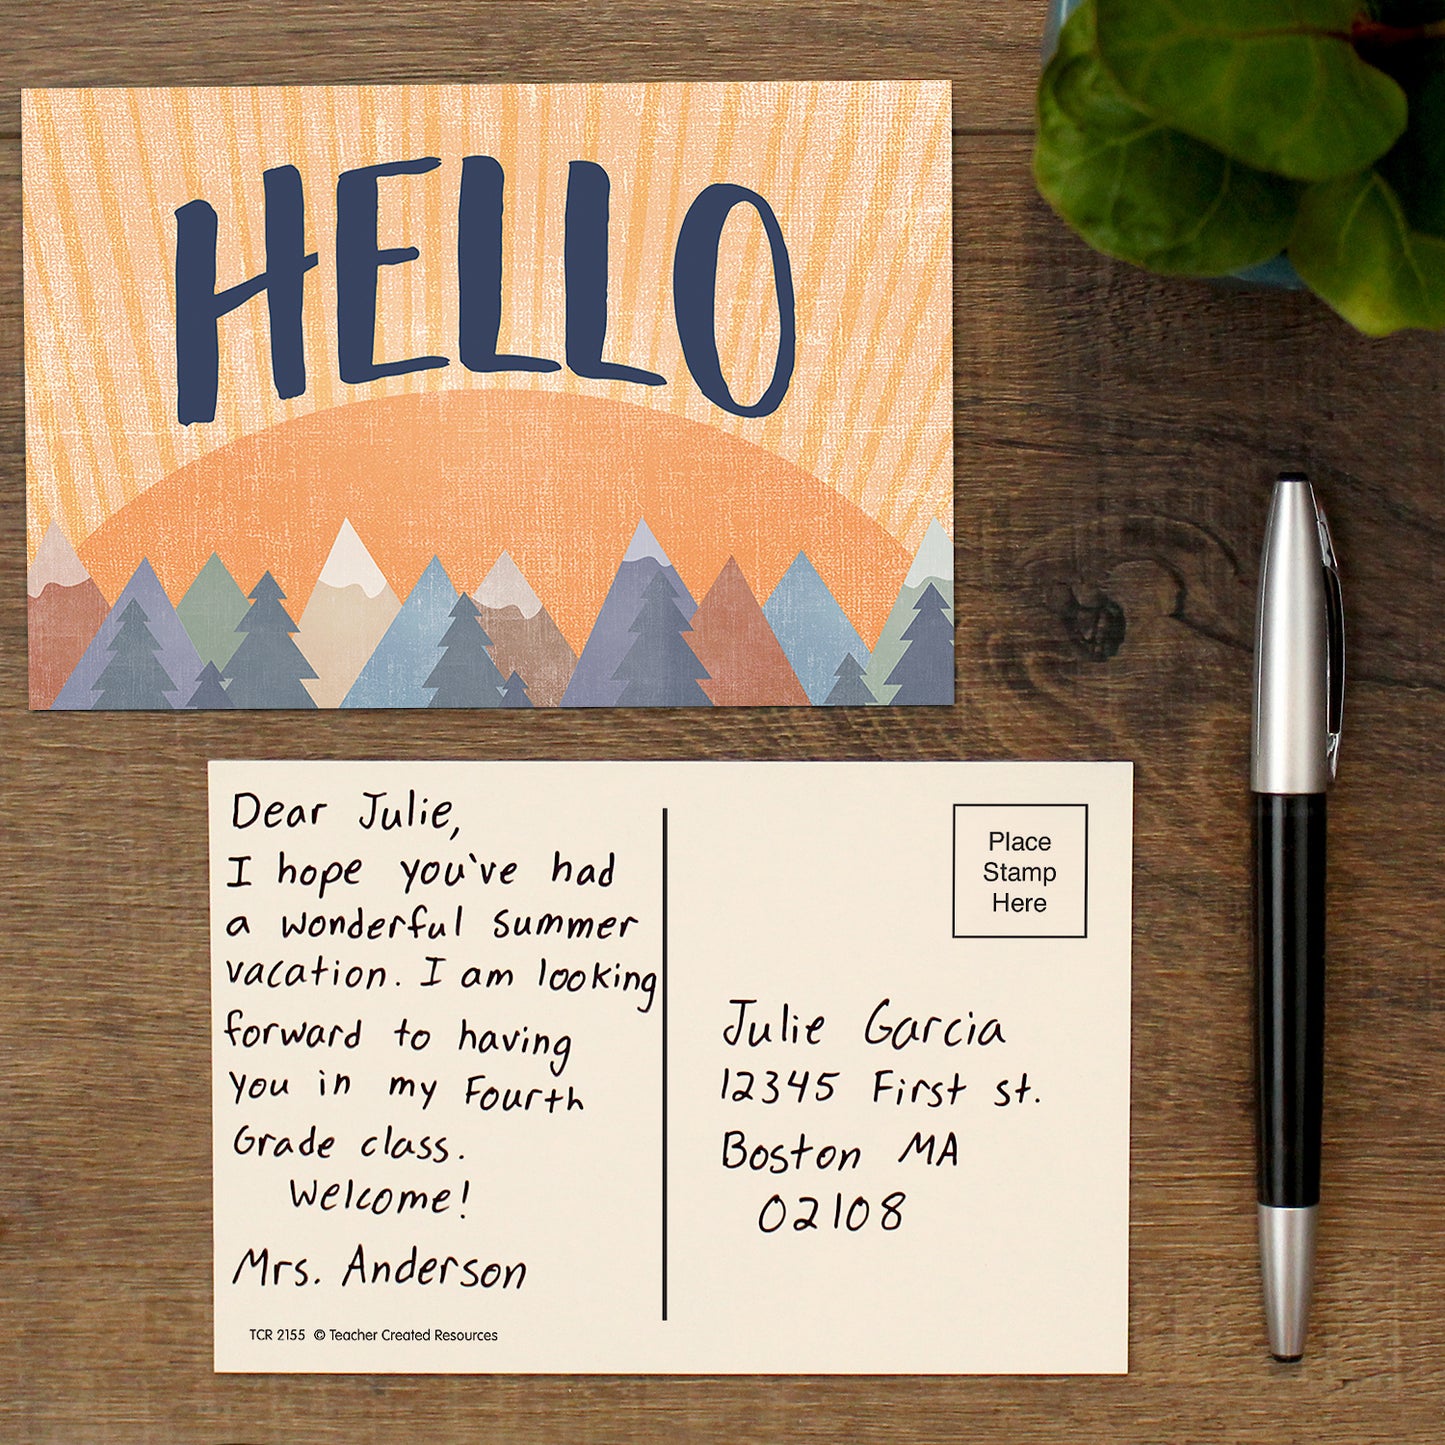 HELLO
Dear Julie,
I hope you've had
a wonderful summer
vacation. I am looking
forward to having
you in my Fourth
Grade class.
Welcome!
Mrs. Anderson
TCR 2155 © Teacher Created Resources
Place
Stamp
Here
Julie Garcia
12345 First st.
Boston MA
02108